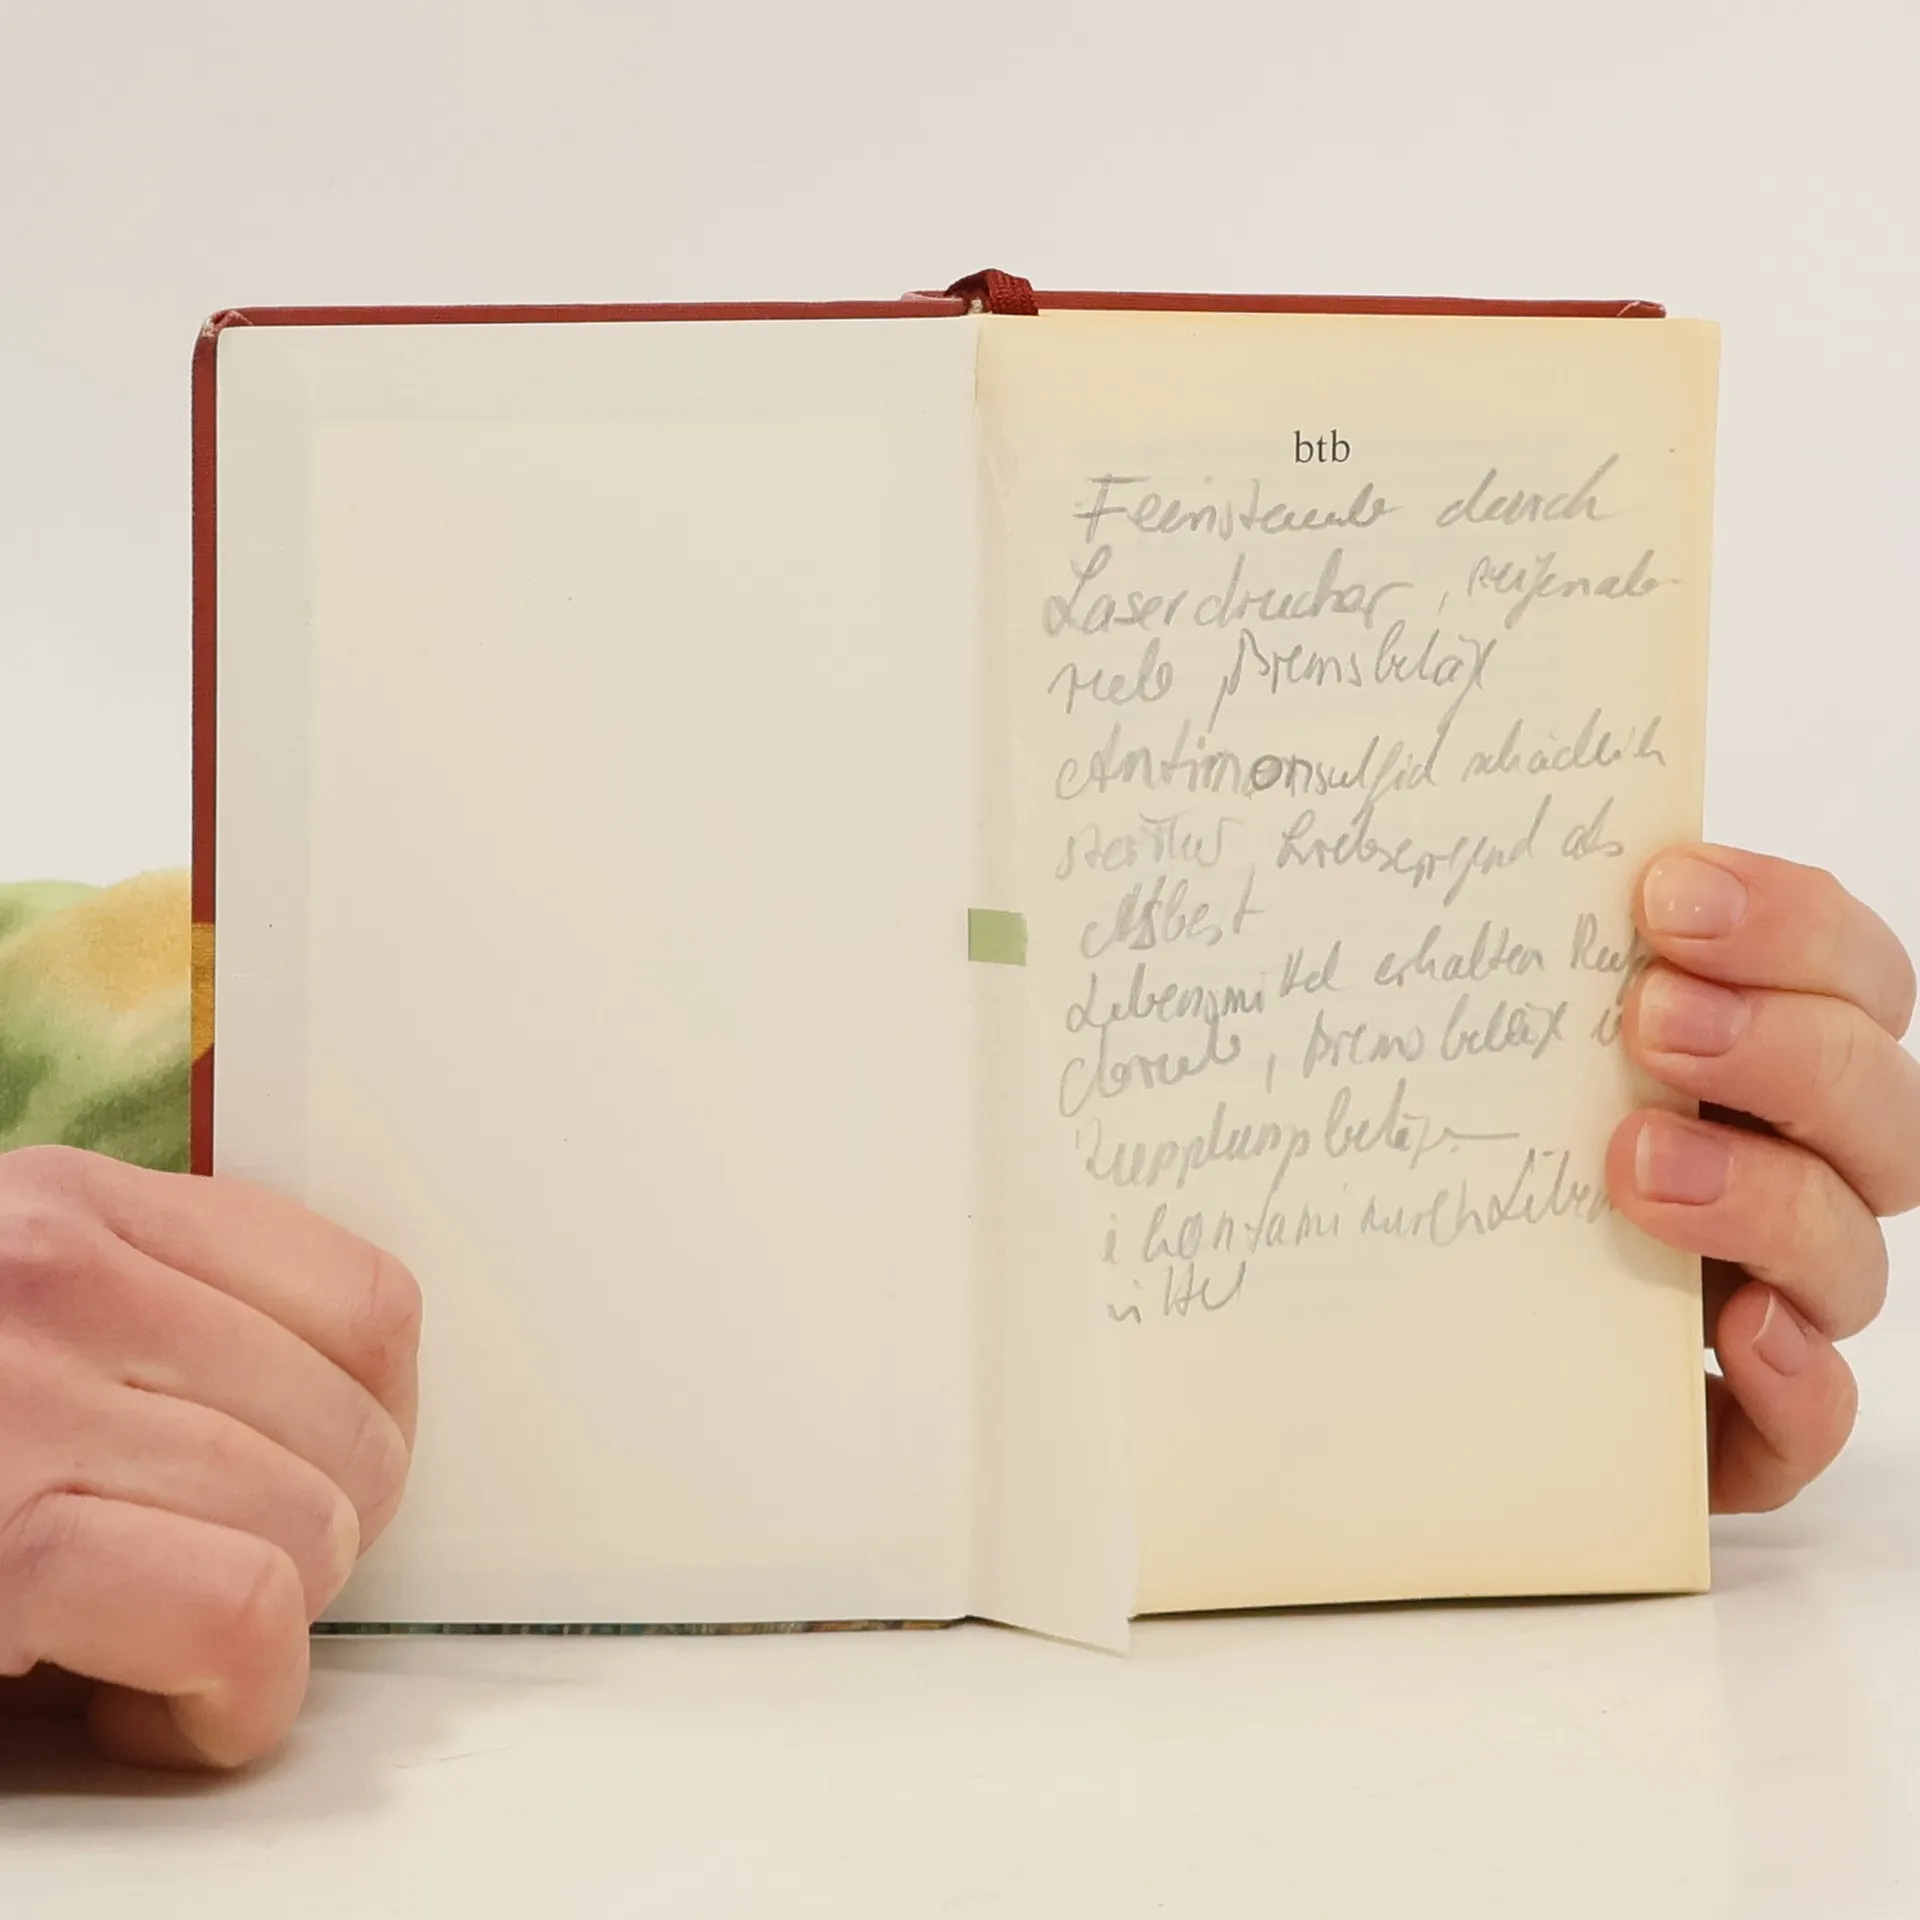 btb
Feinstaub durch
Laserdrucker, Reifenab-
rieb, Bremsbeläg
Antimonsulfid schädlich
krebserregend als
Asbest
Lebensmittel erhalten
Bremsbeläg
Kupplungsbeläge
Leben
mittel